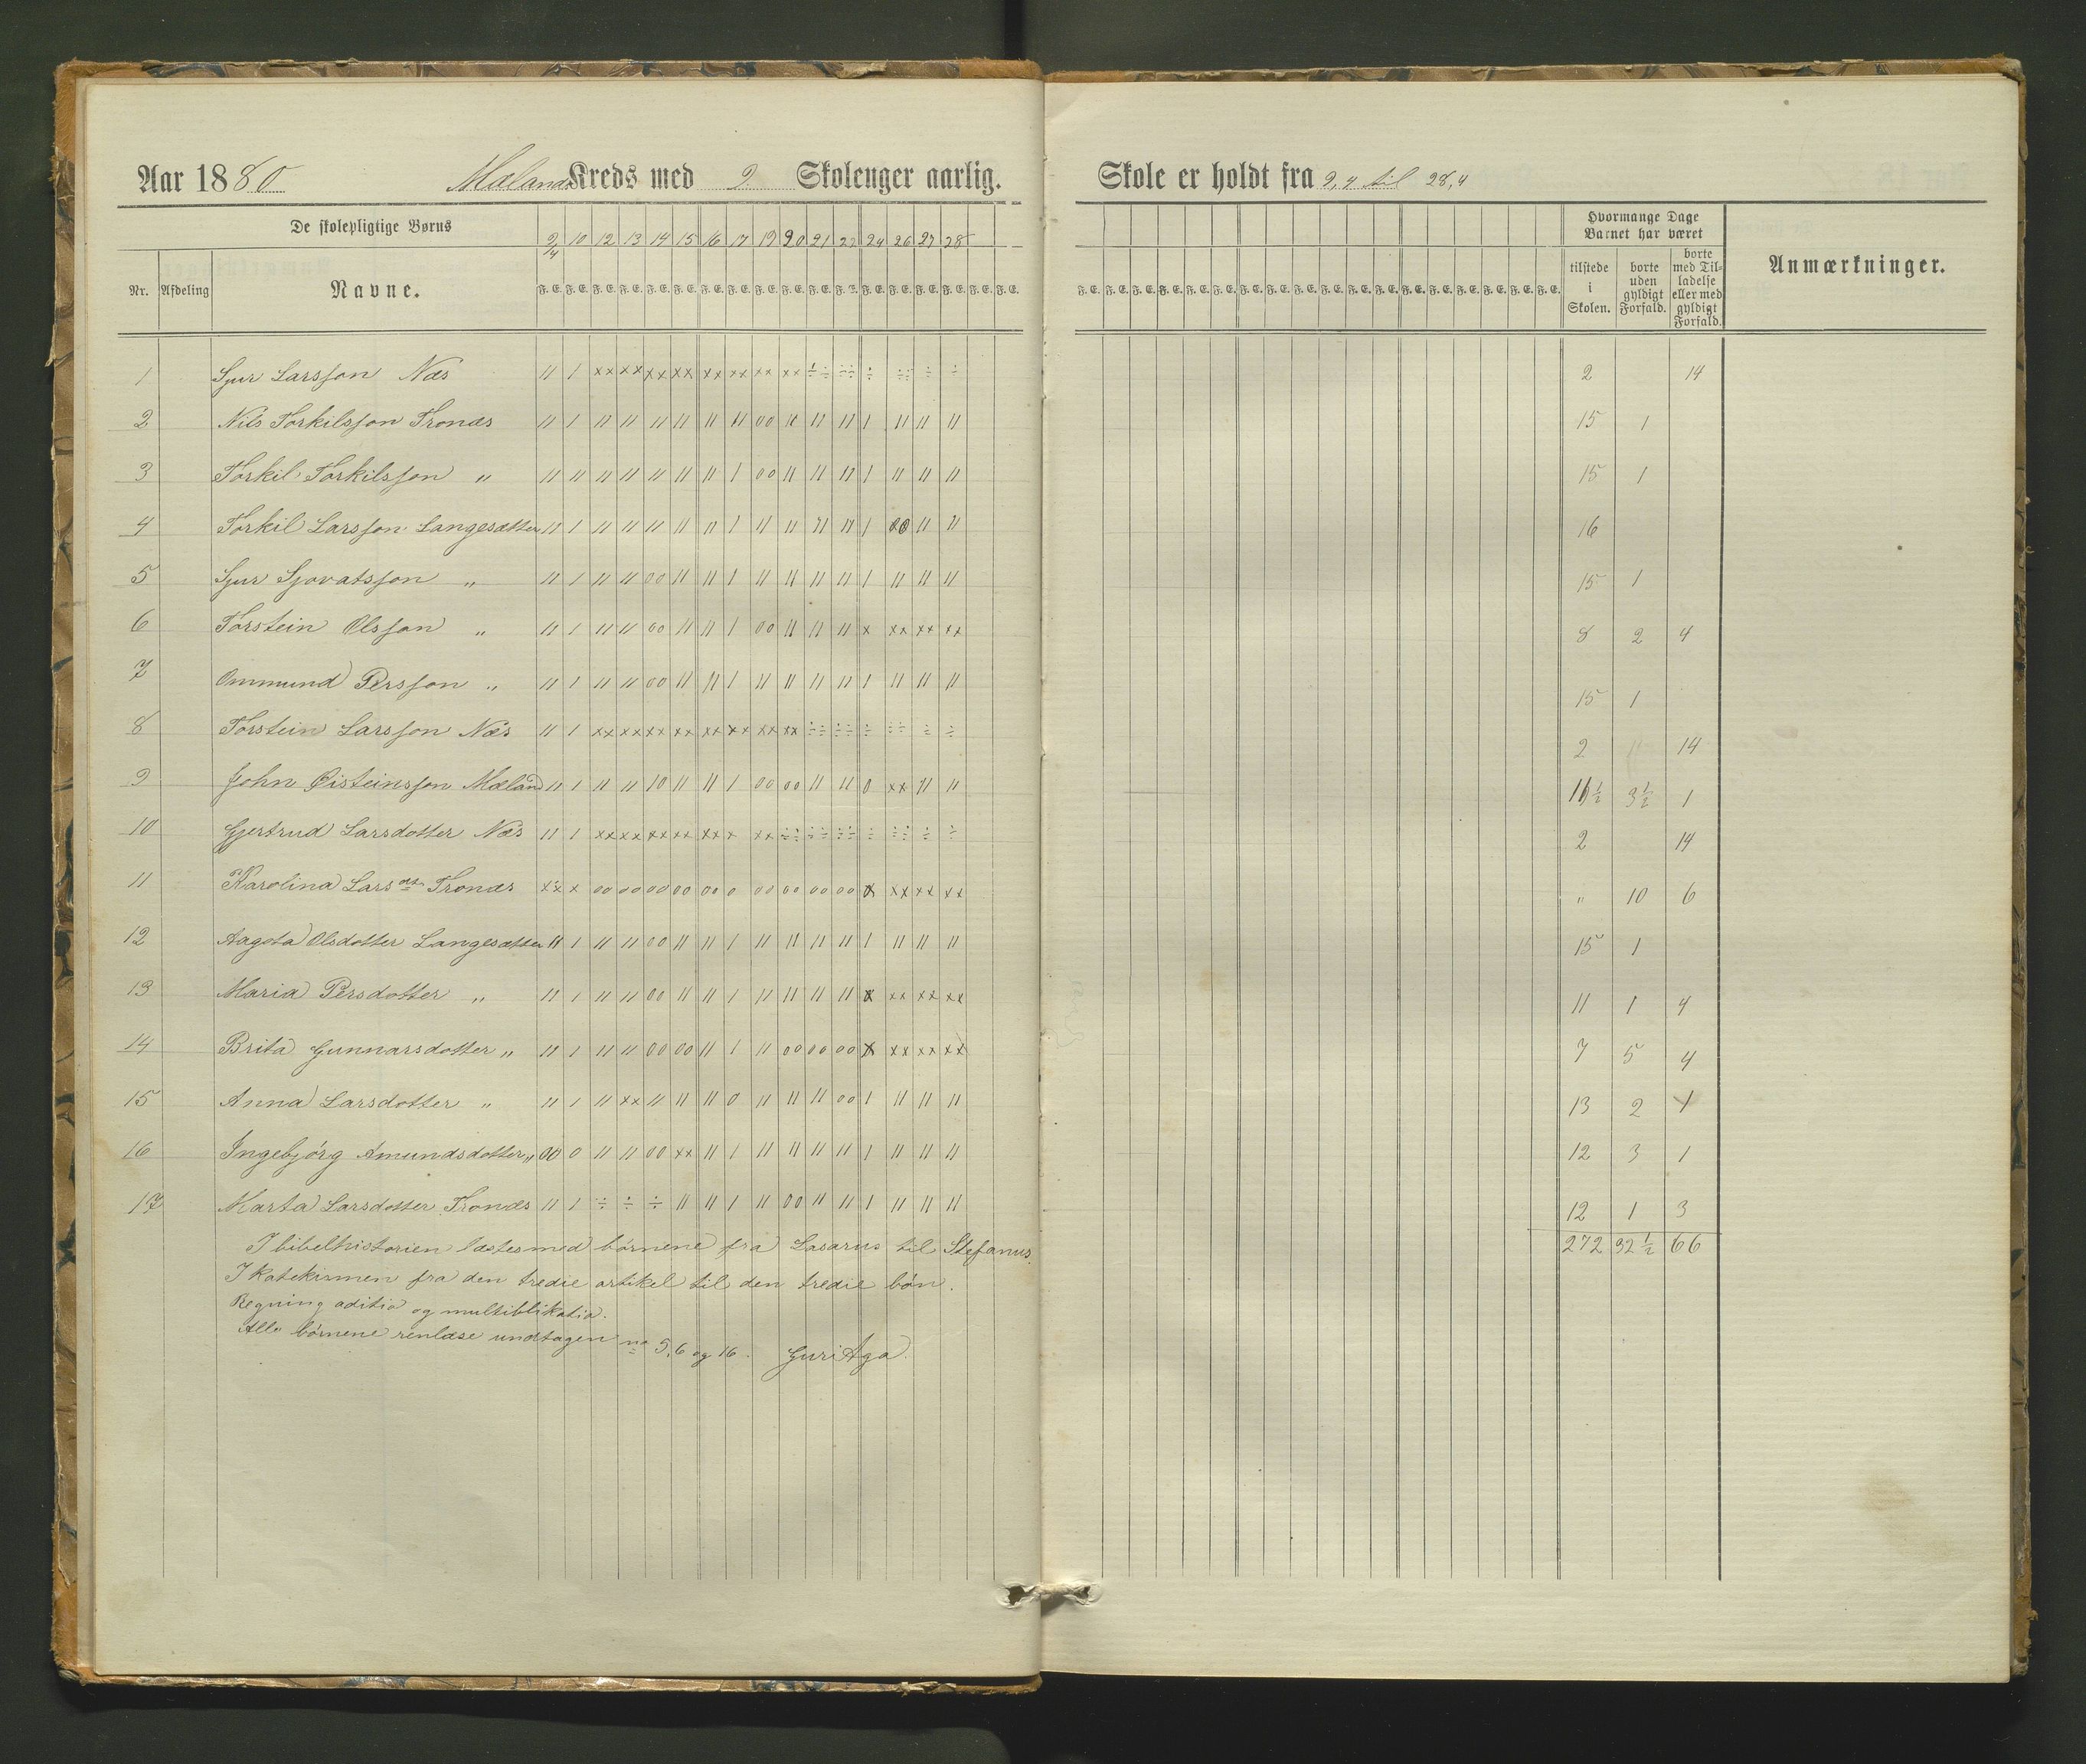 Aar 1880 Mælands Kreds med 2 Skolenger aarlig. Skole er holdt fra 9,4 til 28,4
De skolepligtige Børns
Nr. Afdeling Navne.
9/4 10 12 13 14 15 16 17 19 20 21 22 24 26 27 28
F. E. F. E. F. E. F. E. F. E. F. E. F. E. F. E. F. E. F. E. F. E. F. E. F. E. F. E. F. E. F. E. F. E. F. E.
Hvormange Dage Barnet har været
tilstede i Skolen. borte uden gyldigt Forfald. borte med Tilladelse eller med gyldigt Forfald.
Anmærkninger.
1 Sjur Larsson Næs 11 1 xx xx xx xx xx xx xx xx ÷÷ ÷÷ ÷ ÷÷ ÷ ÷ 2 14
2 Nils Torkilsson Tronæs 11 1 11 11 11 11 11 11 00 11 11 11 1 11 11 11 15 1
3 Torkil Torkilsson „ 11 11 11 11 11 11 11 1 00 11 11 11 1 11 11 11 15 1
4 Torkil Larsson Langesætter 11 1 11 11 11 11 11 1 11 11 11 11 1 00 11 11 16
5 Sjur Sjovatsson „ 11 1 11 11 00 11 11 1 11 11 11 11 1 11 11 11 15 1
6 Torstein Olsson „ 11 1 11 11 00 11 11 1 00 11 11 11 x xx xx xx 8 2 4
7 Ommund Persson „ 11 1 11 11 00 11 11 1 11 11 11 11 1 11 11 11 15 1
8 Torstein Larsson Næs 11 1 xx xx xx xx xx xx xx xx ÷÷ ÷÷ ÷ ÷÷ ÷ ÷ 2 14
9 John Øisteinsson Mæland 11 1 11 11 10 11 11 1 00 00 11 11 0 xx 11 11 11½ 3½ 1
10 Gjertrud Larsdotter Næs 11 1 xx xx xx xx xx x xx ÷÷ ÷÷ ÷÷ ÷ ÷÷ ÷ ÷ 2 14
11 Karolina Larsdt. Tronæs xx x 00 00 00 00 00 0 00 00 00 00 x xx xx xx „ 10 6
12 Aagota Olsdotter Langesætter 11 1 11 11 00 11 11 1 11 11 11 11 1 11 11 11 15 1
13 Maria Persdotter „ 11 1 11 11 00 11 11 1 11 11 11 11 x xx xx xx 11 1 4
14 Brita Gunnarsdotter „ 11 1 11 11 00 00 11 1 11 00 00 00 x xx xx xx 7 5 4
15 Anna Larsdotter „ 11 1 11 xx 11 11 11 0 11 11 11 00 1 11 11 11 13 2 1
16 Ingebjörg Amundsdotter „ 00 0 11 11 00 xx 11 1 11 11 11 11 1 11 11 11 12 3 1
17 Marta Larsdotter Tronæs 11 1 ÷ ÷ ÷ 11 11 1 11 00 11 11 1 11 11 11 12 1 3
272 32½ 66
I bibelhistorien læstes med börnene fra Lasarus til Stefanus.
I katekismen fra den tredie artikel til den tredie bön.
Regning aditio og multiblikatio.
Alle börnene renlæse undtagen no 5, 6 og 16. Guri Aga.